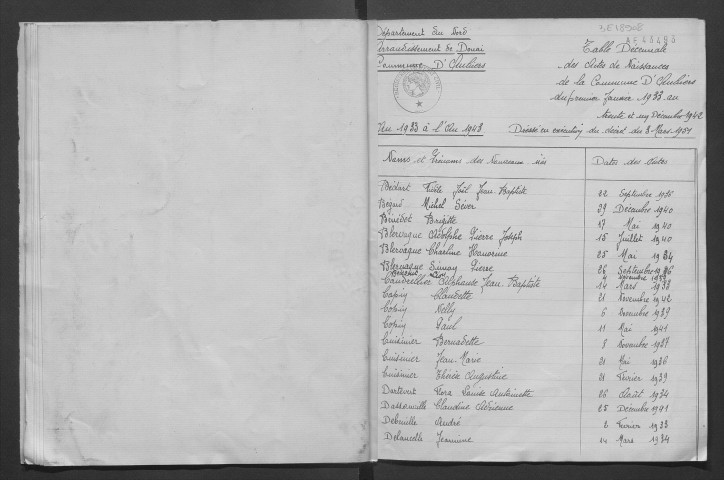 3E18908
Département du Nord
Arrondissement de Douai
Commune D'Auhiers
Table Décennale
des Actes de Naissances
de la Commune D'Auhiers
du premier Janvier 1933 au
trente et un Décembre 1942
An 1933 à l'An 1943
Dressé en exécution du décret du 3 Mars 1951
Noms et Prénoms des Nouveaux nés
Dates des Actes
Bédart Joël Jean Baptiste 22 Septembre 1936
Bégué Michel Sever 29 Décembre 1940
Bénédet Brigitte 17 Mai 1940
Blervaque Adolphe Pierre Joseph 15 Juillet 1940
Blervaque Charline Honorine 25 Mai 1934
Blervaque Simon Pierre 26 Septembre 1936
Caudrellier Alphonse Jean Baptiste 14 Mars 1938
Copin Claudette 21 Novembre 1942
Copin Nelly 6 Novembre 1939
Copin Paul 11 Mai 1941
Cuisinier Bernadette 8 Novembre 1937
Cuisinier Jean-Marie 21 Mai 1936
Cuisinier Thérèse Augustine 21 Février 1939
Dartevet Flora Louise Antoinette 26 Août 1934
Dassonville Claudine Adrienne 25 Décembre 1941
Debuille André 2 Février 1933
Delancelle Jeannine 14 Mars 1934